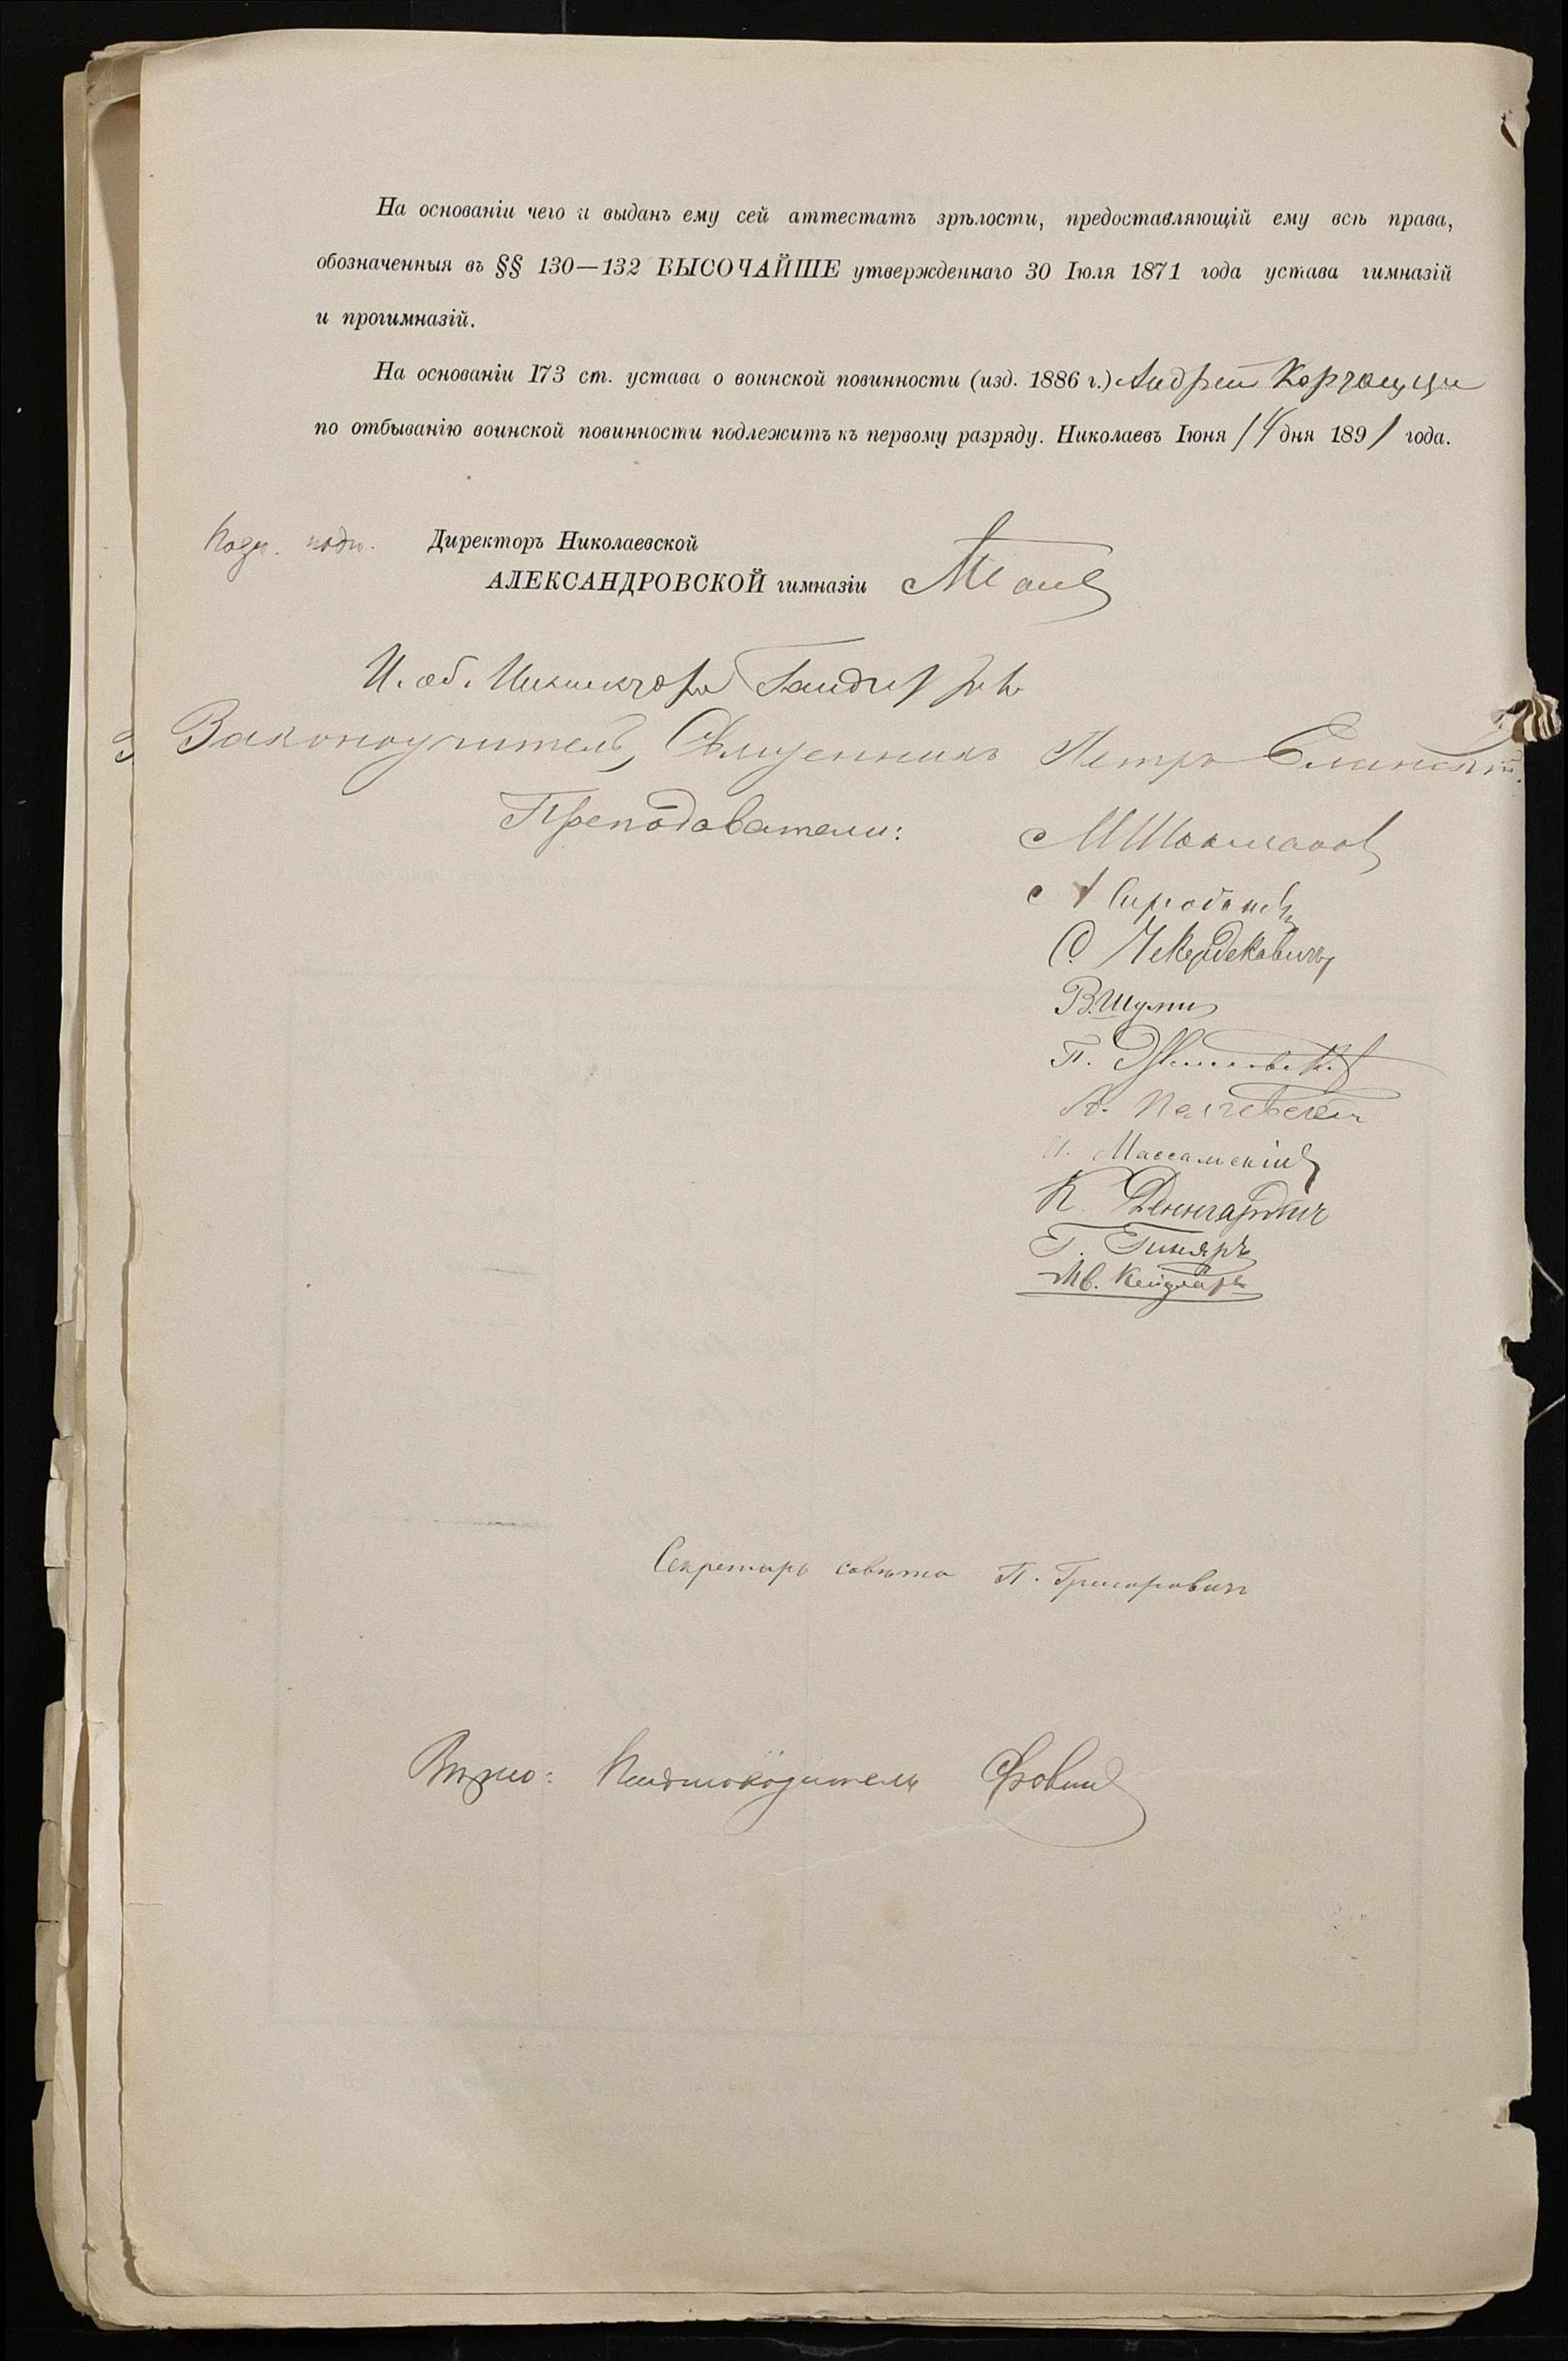 На основаніи чего и выданъ ему сей аттестатъ зрѣлости, предоставляющій ему всѣ права,
обозначенныя въ §§ 130—132 ВЫСОЧАЙШЕ утвержденнаго 30 Іюля 1871 года устава гимназій
и прогимназій.
На основаніи 173 ст. устава о воинской повинности (изд. 1886 г.) Андрей
по отбыванію воинской повинности подлежитъ къ первому разряду. Николаевъ Іюня 14 дня 1891 года.
подп.
Директоръ Николаевской
АЛЕКСАНДРОВСКОЙ гимназіи
И. об. Инспектора
Законоучитель, Священникъ Петръ
Преподаватели:
С.
В. Шуминъ
П.
А.
Массальскій
К. Деннгардтъ
Г. Гиляръ
Ив.
Секретарь совѣта П. Григоровичъ
Вѣрно: Письмоводитель